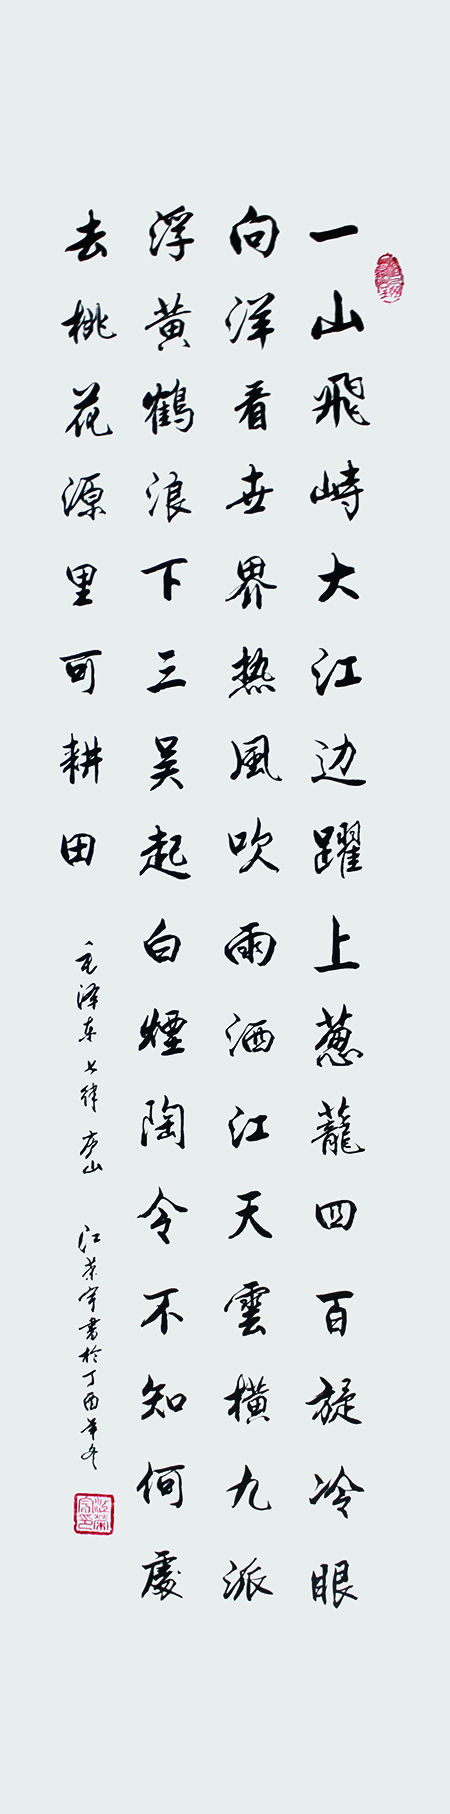 一山飛峙大江边躍上葱蘢四百旋冷眼
向洋看世界热風吹雨洒江天雲横九派
浮黄鶴浪下三吴起白煙陶令不知何處
去桃花源里可耕田
毛泽东七律庐山 江荣宇書於丁酉年冬